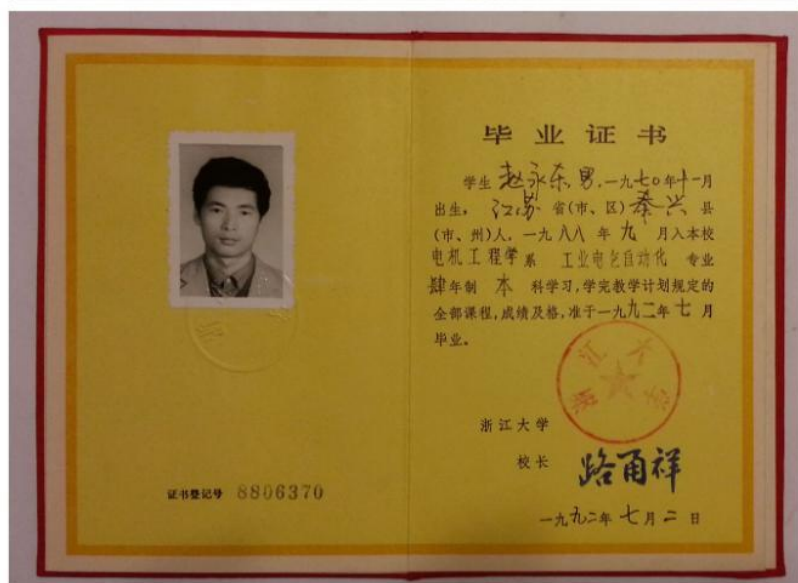 证书登记号 8806370
毕业证书
学生 赵永东 男,一九七0年十一月
出生, 江苏 省(市、区) 泰兴 县
(市、州)人,一九八八年九月入本校
电机工程学系 工业电气自动化 专业
肆年制 本 科学习,学完教学计划规定的
全部课程,成绩及格,准于一九九二年七月
毕业。
浙江大学
浙江大学
校长 路甬祥
一九九二年七月二日